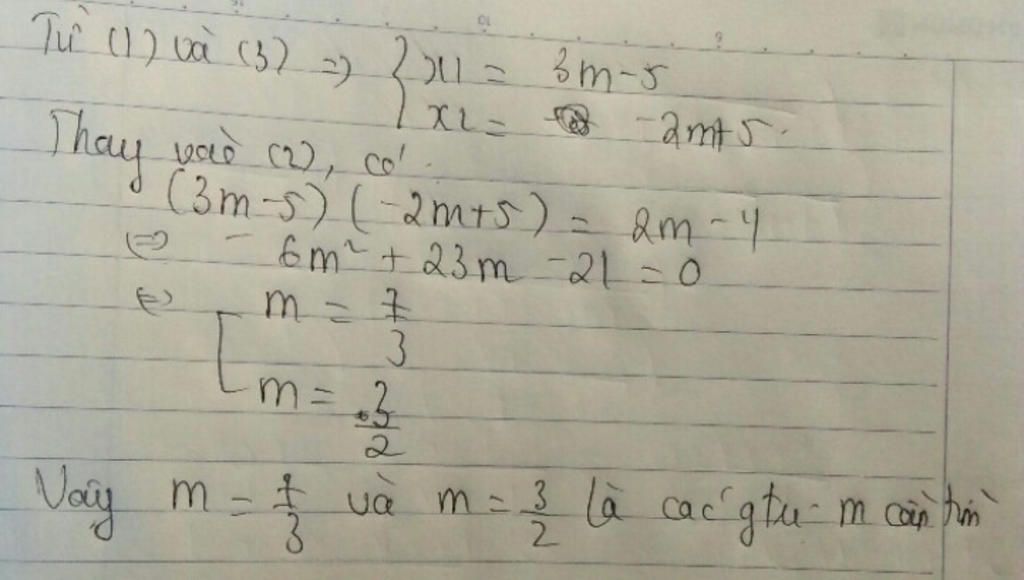 Từ (1) và (3) => { x1 = 3m-5
x2 = -2m+5.
Thay vào (2), có:
(3m-5)(-2m+5) = 2m-4
<=> -6m² + 23m - 21 = 0
<=> [ m = 7/3
m = 3/2
Vậy m = 7/3 và m = 3/2 là các gtrị m cần tìm